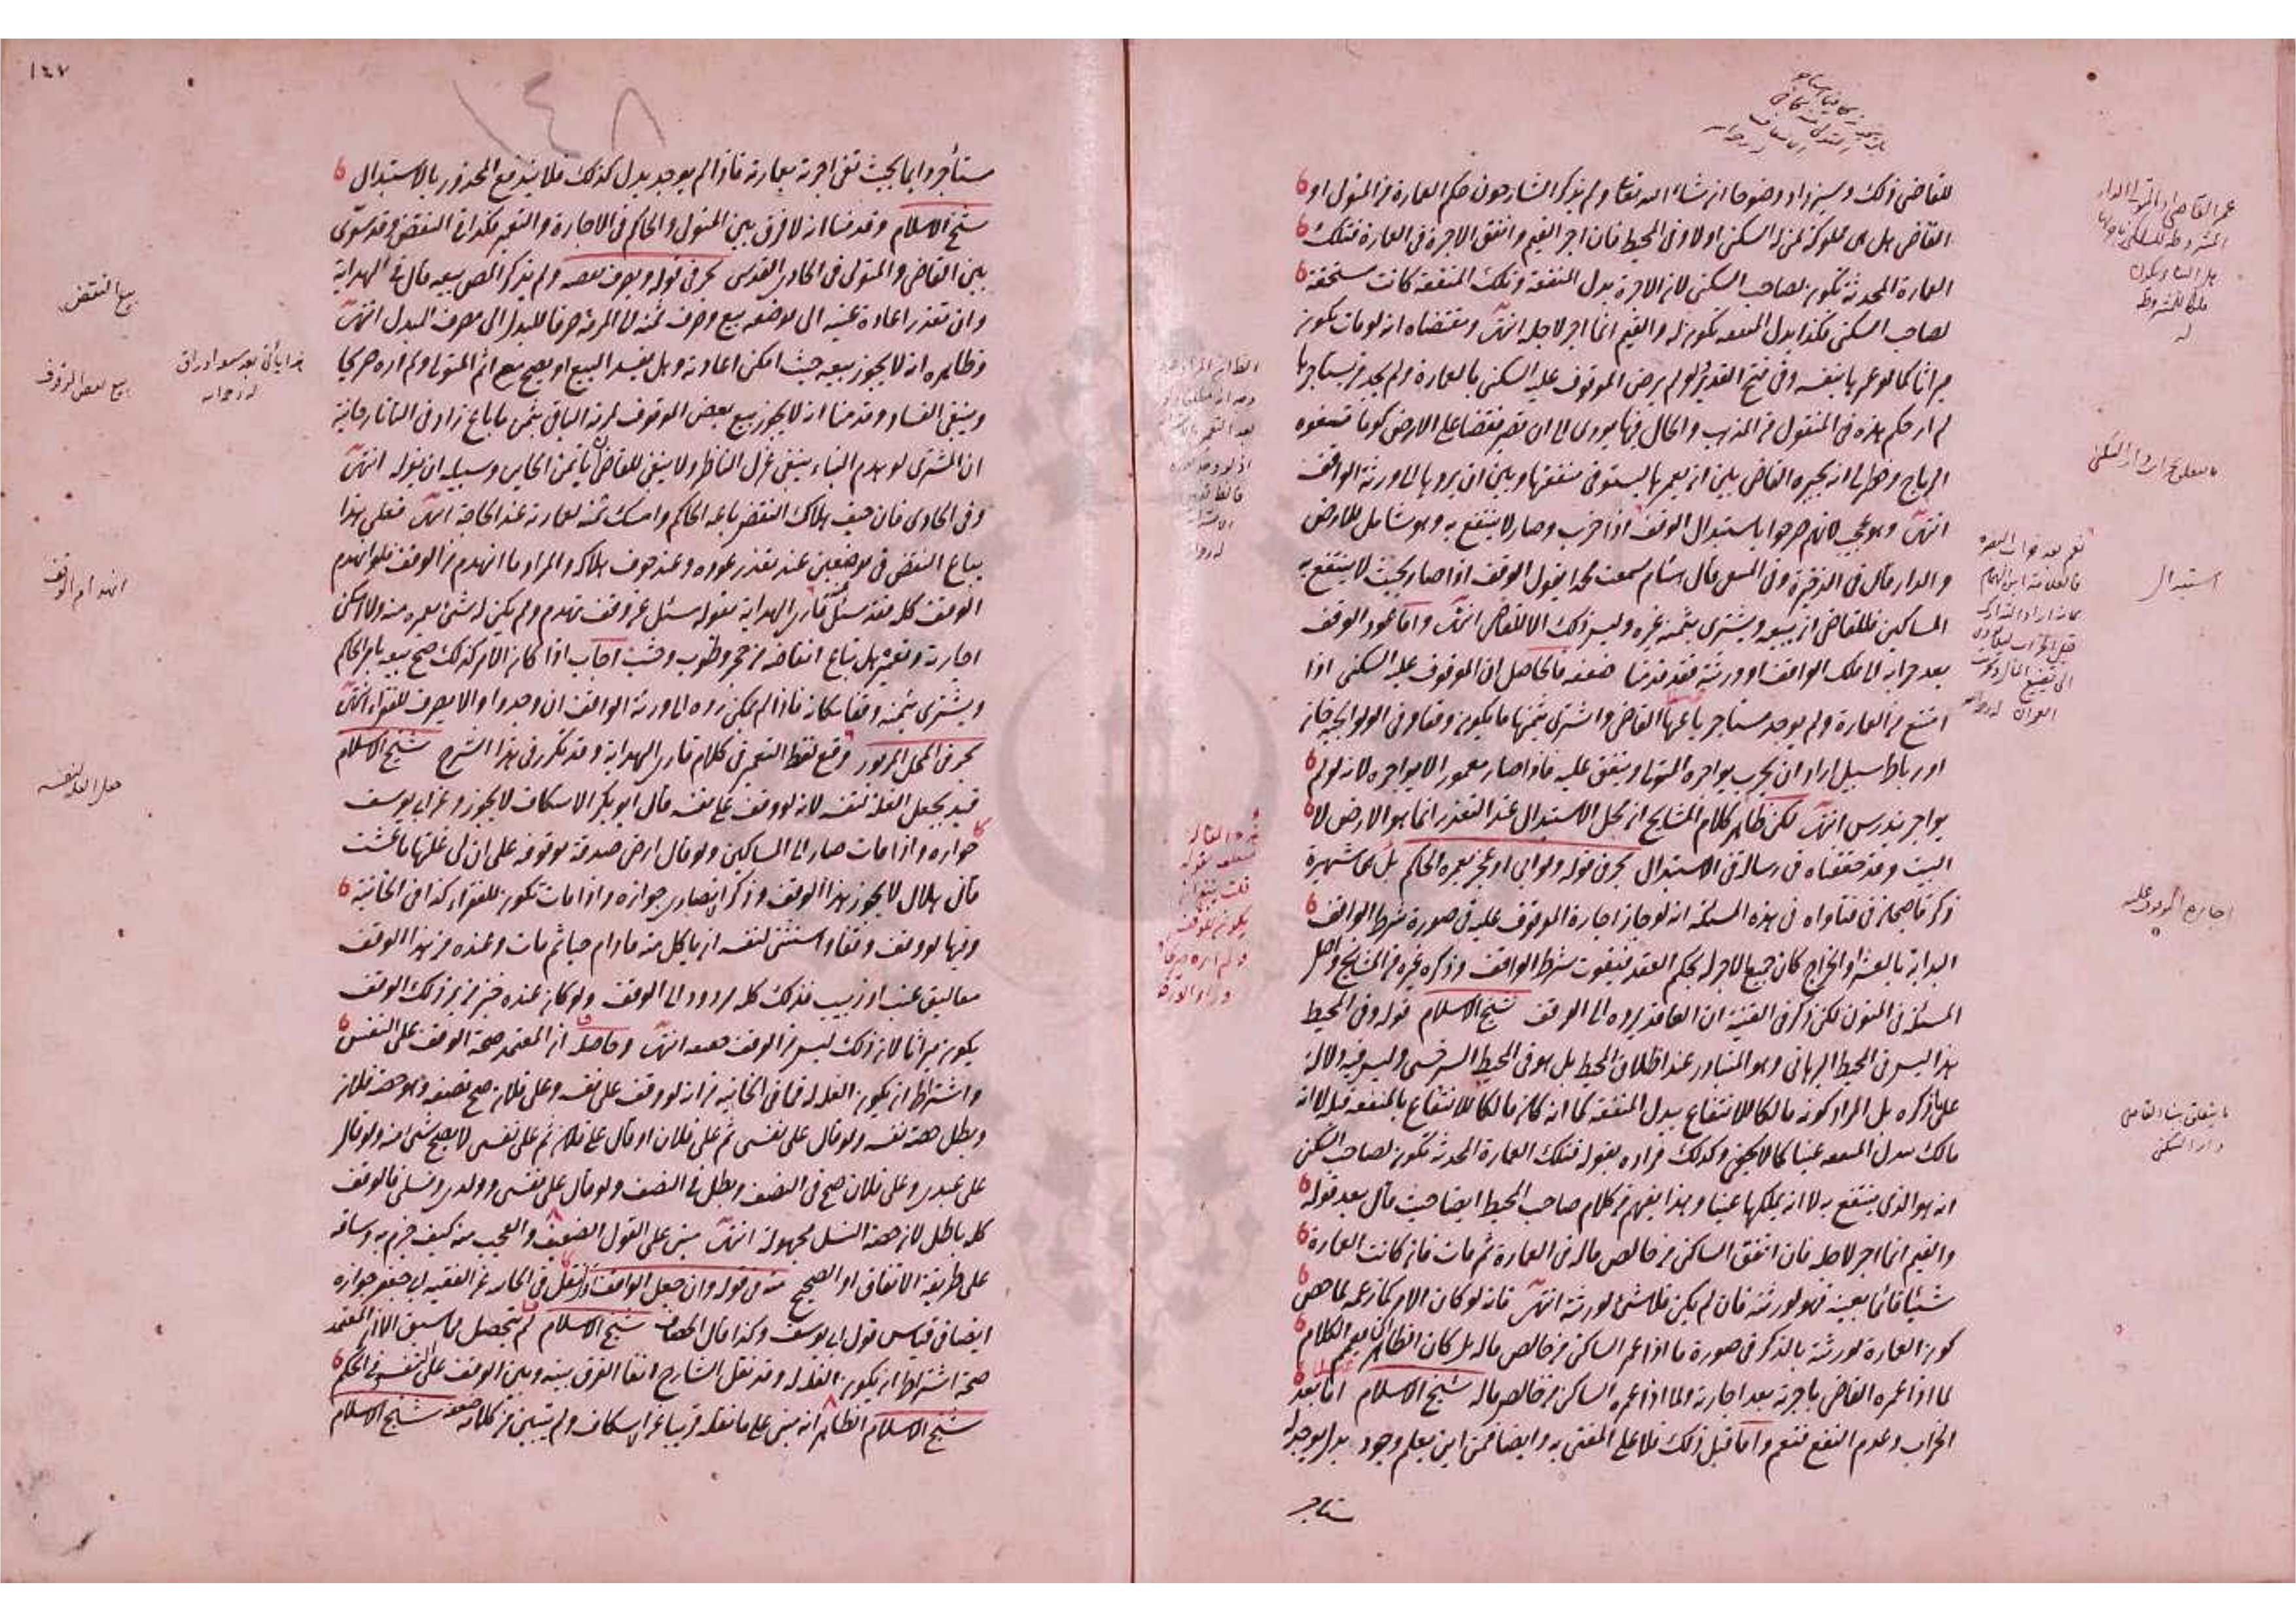 للقاضي ذلك وسيزداد وضوحا ان شاء الله تعالى ولم يذكر الشارحون حكم العمارة من المتولي او
القاضي هل هي مملوكة لمن له السكنى اولا وفي المحيط فان اجر القيم وانفق الاجرة في العمارة فتلك
العمارة المحدثة تكون لصاحب السكنى لان الاجرة بدل المنفعة وتلك المنفعة كانت مستحقة
لصاحب السكنى فكذا بدل المنفعة تكون له والقيم انما اجر لاجله انتهى ومقتضاه انه لو مات تكون
ميراثا كما لو عمرها بنفسه وفي فتح القدير ولو لم يرض الموقوف عليه السكنى بالعمارة ولم يجد من يستأجرها
لم ار حكم هذه في المنقول من المذهب والحال فيها يودي الى ان تصير نقضا على الارض كوما تسفوه
الرياح وخطر لي انه يخيره القاضي بين ان يعمرها ليستوفي منفعتها وبين ان يردها الى ورثة الواقف
انتهى وهو عجيب لانهم صرحوا باستبدال الوقف اذا خرب وصار لا ينتفع به وهو شامل للارض
والدار قال في الذخيرة وفي المنتقى قال هشام سمعت محمدا يقول الوقف اذا صار بحيث لا ينتفع به
المساكين فللقاضي ان يبيعه ويشتري بثمنه غيره وليس ذلك الا للقاضي انتهى واما عود الوقف
بعد خرابه الى ملك الواقف او ورثته فقد قدمنا ضعفه فالحاصل ان الموقوف عليه السكنى اذا
امتنع من العمارة ولم يوجد مستاجر باعها القاضي واشترى بثمنها ما يكون وقفا وفي الولوالجيه خان
او رباط سبيل اراد ان يخرب يواجره المتولي وينفق عليه فاذا صار معمورا لا يواجره لانه لو لم
يواجر يندرس انتهى لكن ظاهر كلام المشايخ ان محل الاستبدال عند التعذر انما هو الارض لا
البيت وقد حققناه في رسالة في الاستبدال بحر في قوله ولو ابى او عجز يعمره الحاكم بل هي شهيرة
ذكر قاضيخان في فتاواه في هذه المسئلة انه لو جاز اجارة الموقوف عليه في صورة شرط الواقف
البداية بالعشر والخراج كان جميع الاجر له بحكم العقد فيفوت شرط الواقف وذكره غيره من المشايخ واصل
المسئلة في المتون لكن ذكر في القنية ان العاقد يرده الى الوقف شيخ الاسلام قوله وفي المحيط
هذا ليس في المحيط البرهاني وهو المتبادر عند اطلاق المحيط بل هو في المحيط السرخسي وليس فيه دلالة
على ما ذكره بل المراد كونه مالكا للانتفاع ببدل المنفعة كما انه كان مالكا للانتفاع بالمنفعة قبله لا انه
مالك لبدل المنفعة عينا كما لا يخفى وكذلك مراده بقوله فتلك العمارة المحدثة تكون لصاحب السكنى
انه هو الذي ينتفع به لا انه يملكها عينا وهذا يفهم من كلام صاحب المحيط ايضا حيث قال بعد قوله
والقيم انما اجر لاجله فان انفق الساكن من خالص ماله في العمارة ثم مات فان كانت العمارة
شيئا قائما بعينه فهو لورثته فان لم يكن فلا شئ لورثته انتهى فانه لو كان الامر كما زعمه لما خص
كون العمارة لورثته بالذكر في صورة ما اذا عمر الساكن من خالص ماله بل كان الظاهر ان يعم الكلام
لما اذا عمره القاضي باجرته بعد اجارته ولما اذا عمره الساكن من خالص ماله شيخ الاسلام اما بعد
الخراب وعدم النفع فنعم واما قبل ذلك فلا على المفتى به وايضا فمن اين يعلم وجود بدل يوجد له
ستاجر
عمر القاضي او المتولي الدار
المشروطة للسكنى
استبدال
اجارة الموقوف عليه
١٤٧
١٤٨
ستأجر دائما بحيث تفي اجرته بعمارته فاذا لم يوجد بدل كذلك فلا يندفع المحذور بالاستبدال
شيخ الاسلام وقدمنا انه لا فرق بين المتولي والحاكم في الاجارة والتعمير فكذا في النقض وقد سوى
بين القاضي والمتولي في الحاوي القدسي بحر في قوله ويصرف نقضه ولم يذكر المص بيعه قال في الهداية
وان تعذر اعادة عينه الى موضعه بيع وصرف ثمنه الى المرمة صرفا للبدل الى مصرف المبدل انتهى
وظاهره انه لا يجوز بيعه حيث امكن اعادته وهل يفسد البيع او يصح مع اثم المتولي ولم اره صريحا
وينبغي الفساد وقدمنا انه لا يجوز بيع بعض الموقوف لمرمة الباقي بثمن ما باع زاد في التاتارخانية
ان المشتري لو هدم البناء ينبغي عزل الناظر ولا ينبغي للقاضي ان يأتمن الخاين وسبيله ان يعزله انتهى
وفي الحاوي فان خيف هلاك النقض باعه الحاكم وامسك ثمنه لعمارته عند الحاجة انتهى فعلى هذا
يباع النقض في موضعين عند تعذر عوده وعند خوف هلاكه والمراد ما انهدم من الوقف فلو انهدم
الوقف كله فقد سئل عنه قارئ الهداية بقوله سئل عن وقف تهدم ولم يكن له شئ يعمر منه ولا امكن
اجارته وتعميره هل تباع انقاضه من حجر وطوب وخشب اجاب اذا كان الامر كذلك صح بيعه بامر الحاكم
ويشتري بثمنه وقفا مكانه فاذا لم يمكن رده الى ورثة الواقف ان وجدوا والا يصرف للفقراء انتهى
بحر في المحل المزبور وقع لفظ التعمير في كلام قارئ الهداية وقد تكرر في هذا الشرح شيخ الاسلام
قيد بجعل الغلة لنفسه لانه لو وقف على نفسه قال ابو بكر الاسكاف لا يجوز وعن ابي يوسف
جوازه واذا مات صار الى المساكين ولو قال ارض صدقة موقوفة على ان لي غلتها ما عشت
قال هلال لا يجوز هذا الوقف وذكر الانصاري جوازه واذا مات تكون للفقراء كذا في الخانية
وفيها لو وقف وقفا واستثنى لنفسه ان ياكل منه ما دام حيا ثم مات وعنده من هذا الوقف
معاليق عنب او زبيب فذلك كله مردود الى الوقف ولو كان عنده خبز من بر ذلك الوقف
يكون ميراثا لان ذلك ليس من الوقف حقيقة انتهى وحاصله ان المعتمد صحة الوقف على النفس
واشتراط ان يكون الغلة له فما في الخانيه من انه لو وقف على نفسه وعلى فلان صح نصفه وهو حصة فلان
وبطل حصة نفسه ولو قال على نفسي ثم على فلان او قال على فلان ثم على نفسي لا يصح شئ منه ولو قال
على عبدي وعلى فلان صح في النصف وبطل في النصف ولو قال على نفسي وولدي ونسلي فالوقف
كله باطل لان حصة النسل مجهولة انتهى مبني على القول الضعيف والعجب منه كيف جزم به وساقه
على طريقة الاتفاق او الصحيح منه في قوله وان جعل الواقف ونقل في الخانيه عن الفقيه ابي جعفر جوازه
ايضا في قياس قول ابي يوسف وكذا قال الخصاف شيخ الاسلام لم يتحصل مما سبق الا ان المعتمد
صحة اشتراط ان يكون الغلة له وقد نقل الشارح انفا الفرق بينه وبين الوقف على النفس في الحكم
شيخ الاسلام الظاهر انه مبني على ما نقله قريبا عن الاسكاف ولم يتبين من كلامه ضعفه شيخ الاسلام
بيع النقض
بيع بعض الوقوف
انهدام الوقف
جعل الغلة لنفسه